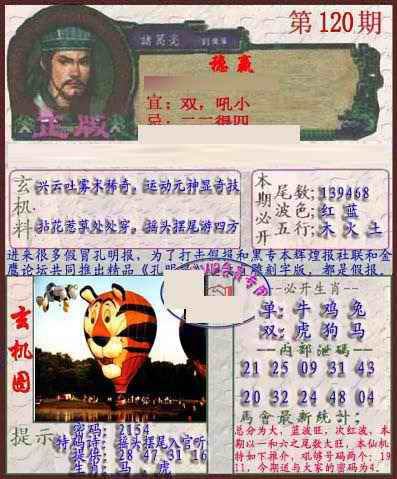 第120期
諸葛亮
稳赢
宜：双，吼小
忌：二二得四
正版
玄机料
兴云吐雾未稀奇，运动元神显奇技
拈花惹草处处穿，摇头摆尾游四方
本期必开
尾数：139468
波色：红 蓝
五行：木 火 土
进来很多假冒孔明报，为了打击假报和黑专本辉煌报社联和金
玄机图
--必开生肖--
单：牛 鸡 兔
双：虎 狗 马
--内部泄码--
21 25 09 31 43
20 32 24 48 04
馬會最新統計：
总分为大，蓝波旺；次红波，本
期以一和六之尾数大旺，本仙机
特如下推介，吼够号码两个：19
11，今期送与大家的密码为4.
提示
密码：2154
特码诗：摇头摆尾入官听
提倍：28 47 31 16
生肖：马，虎